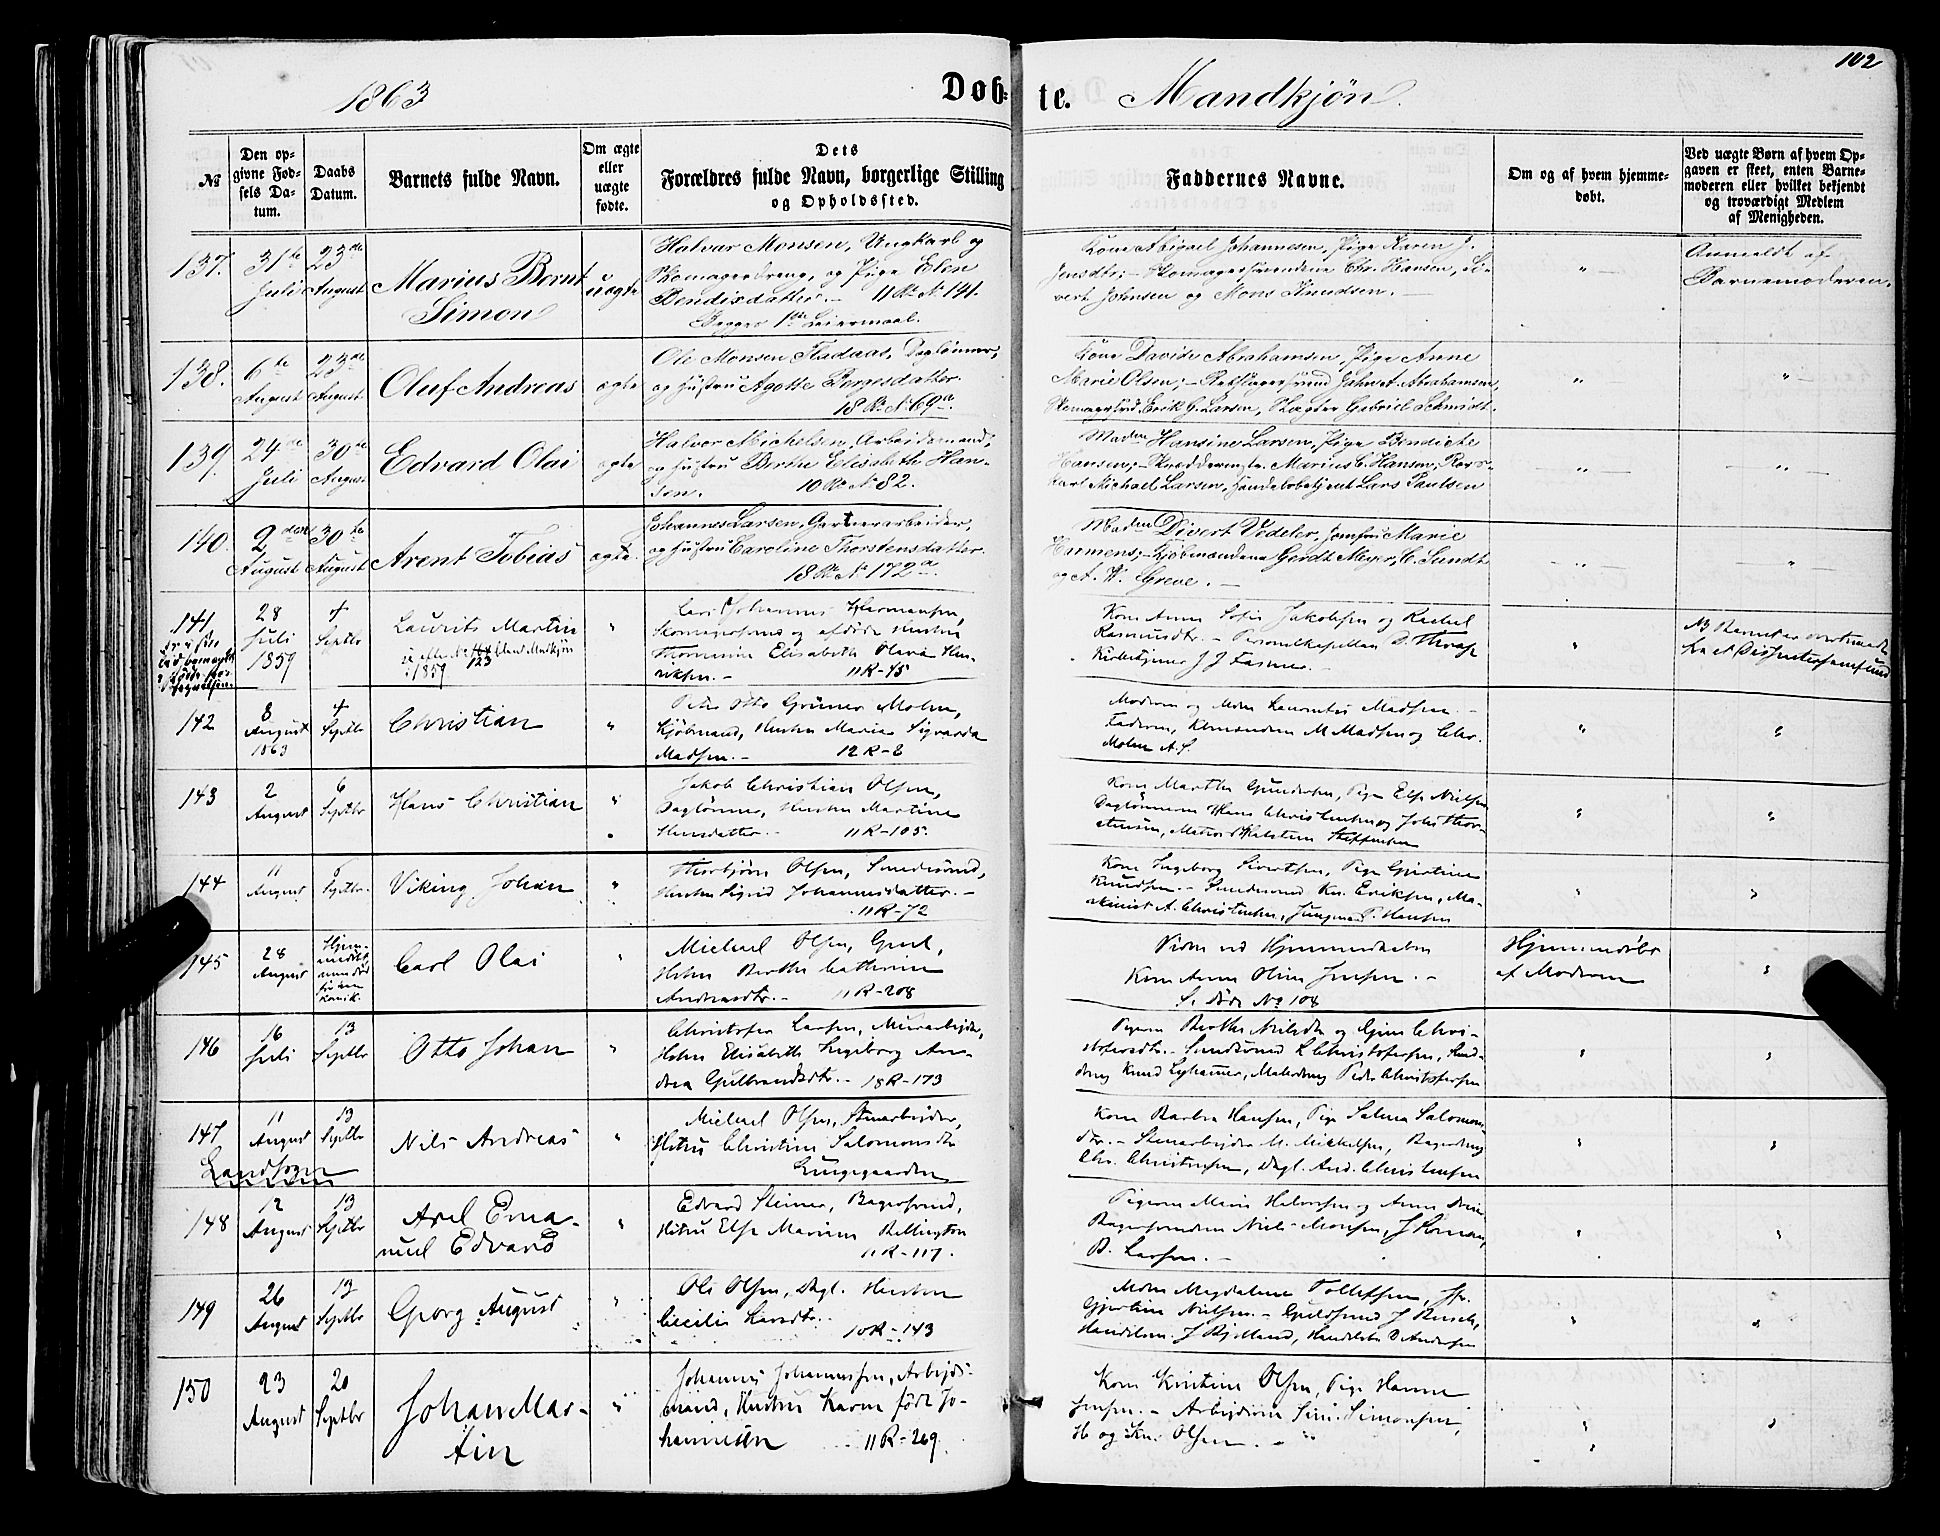 102
1863
Døb-
te. Mandkjøn.
№
Den op-
givne Fød-
sels Da-
tum.
Daabs
Datum.
Barnets fulde Navn.
Om ægte
eller
uægte
fødte.
Dets
Forældres fulde Navn, borgerlige Stilling
og Opholdssted.
Faddernes Navne.
Om og af hvem hjemme-
døbt.
Ved uægte Børn af hvem Op-
gaven er skeet, enten Barne-
moderen eller hvilket bekjendt
og troværdigt Medlem
af Menigheden.
137.
31te
Juli
23de
August
Marius Bernt
Simon
uægte
Halvar Monsen, Ungkarl og
Skomagerdreng, og Pige Elen
Bendixdatter. 11 R. N. 141.
Begges 1ste Leiermaal.
Kone Abigael Johannesen, Pige Karen J.
Jensdtr; - Skomagersvendene Chr. Hansen, Si-
vert Johnsen og Mons Knudsen.
"
Anmeldt af
Barnemoderen.
138.
6te
August
23de
August
Oluf Andreas
ægte
Ole Monsen Fladaas, Daglønner,
og Hustru Agotte Bergesdatter.
18 R. N. 69a.
Kone Davide Abrahamsen, Pige Anne
Marie Olsen; - Rebslagersvend John A. Abrahamsen,
Skomagersvd. Erik G. Larsen, Slagter Gabriel Schmidt.
"
"
139.
24de
Juli
30te
August
Edvard Olai
ægte
Halvor Michelsen, Arbeidsmand,
og Hustru Berthe Elisabeth Han-
sen. 10 R. N. 82.
Madm Hansine Larsen, Pige Bendicte
Hansen; - Skræddermstr. Marius C. Hansen, Rors-
karl Michael Larsen, Handelsbetjent Lars Paulsen
"
"
140.
2den
August
30te
August
Arent Tobias
ægte
Johannes Larsen, Gartnerarbeider,
og Hustru Caroline Thorstensdatter.
18 R. N. 172a.
Madm Divert Vedeler, Jomfru Marie
Harmens; - Kjøbmændene Gerdt Meyer, C. Sundt
og A. W. Greve.
"
"
141
28
Juli
1859
4
Septbr
Laurits Martin
1859 123
"
Lars Johannes Hermansen,
Skomagersvend og afdøde Hustru
Thorvine Elisabeth Olava Hen-
riksen. - 11 R - 45
Kone Anna Sofie Jakobsen og Rachel
Rasmusdtr. - Personelkapellan D. Thrap
Kirketjener J J Fasmer. -
"
NB Barnet er overtraadt
fra et Dissentersamfund
142
8
August
1863
4
Septbr
Christian
"
Peter Otto Grüner Mohn,
Kjøbmand, Hustru Maria Sigvarda
Madsen. - 12 R - 8
Moderen og Mdm Laurentze Madsen. -
Faderen, Kjbmændene M Madsen og Chr.
Mohn A. S.
"
"
143
2
August
6
Septbr
Hans Christian
"
Jakob Christian Olsen,
Daglønner, Hustru Martine
Hansdatter. 11 R - 105.
Kone Marthe Gundersen, Pige Else Nielsen,
Daglønnerne Hans Christensen og Johs Thor-
stensen, Matros Halstein Steffensen
"
"
144
11
August
6
Septbr.
Viking Johan
"
Thorbjørn Olsen, Smedesvend,
Hustru Sigrid Johannesdatter. -
11 R - 72
Kone Ingeborg Sivertsen, Pige Gjertine
Knudsen. - Smedesvend Kn. Eriksen, Ma-
skinist A. Christensen, Jungmand P. Hansen
"
"
145
28
August
Carl Olai
"
Michael Olsen, Gaml.,
Hustru Berthe Cathrine
Andreasdtr. - 11 R - 208
Vidne ved Hjemmedaaben
Kone Anna Oline Jensen. -
S. døde No 108
Hjemmedøbt
af Moderen
"
146
16
Juli
13
Septbr
Otto Johan
"
Christofer Larsen, Murarbejder,
Hstru Elisabeth Ingeborg An-
drea Gulbrandsdtr. - 18 R - 173
Pigerne Berthe Nielsdtr og Gine Chri-
stofersdtr. - Smedsvend L Christofersen, Smed-
dreng Knud Lyhamer, Malerdreng Peder Christofersen
"
"
147
Landsogn
11
August
13
Septbr
Nils Andreas
"
Michael Olsen, Stenarbejder,
Hstru Christine Salomonsdtr
Lungegaarden
Kone Barbra Hansen, Pige Salma Salomons-
dtr. - Stenarbejder M. Mikkelsen, Bagerdreng
Chr. Christensen, Dagl. And. Christensen
"
"
148
12
August
13
Septbr
Axel Ema-
nuel Edvard
"
Edvard Steiner, Bagersvend,
Hstru Else Marine Bellington
11 R - 117.
Pigerne Marie Halvorsen og Anna Dreier
Bagersvendene Niels Monsen, J Roman,
B. Larsen. -
"
"
149
26
August
13
Septbr
Georg August
"
Ole Olsen, Dagl. Hustru
Cecilie Larsdtr.
10 R - 143
Mdm Magdalene Tollefsen, Jfr.
Gjertine Nielsen. - Guldsvend J Busch,
Handelsm. J Kjelland, Handelsbt D Andersen
"
"
150
23
August
20
Septbr
Johan Mar-
tin
"
Johannes Johannessen, Arbejds-
mand, Hustru Karen født Jo-
hannessen 11 R - 269
Kone Kristine Olsen, Pige Hanne
Jensen. - Arbejderne Sim. Simonsen,
H og Kn. Olsen. -
"
"